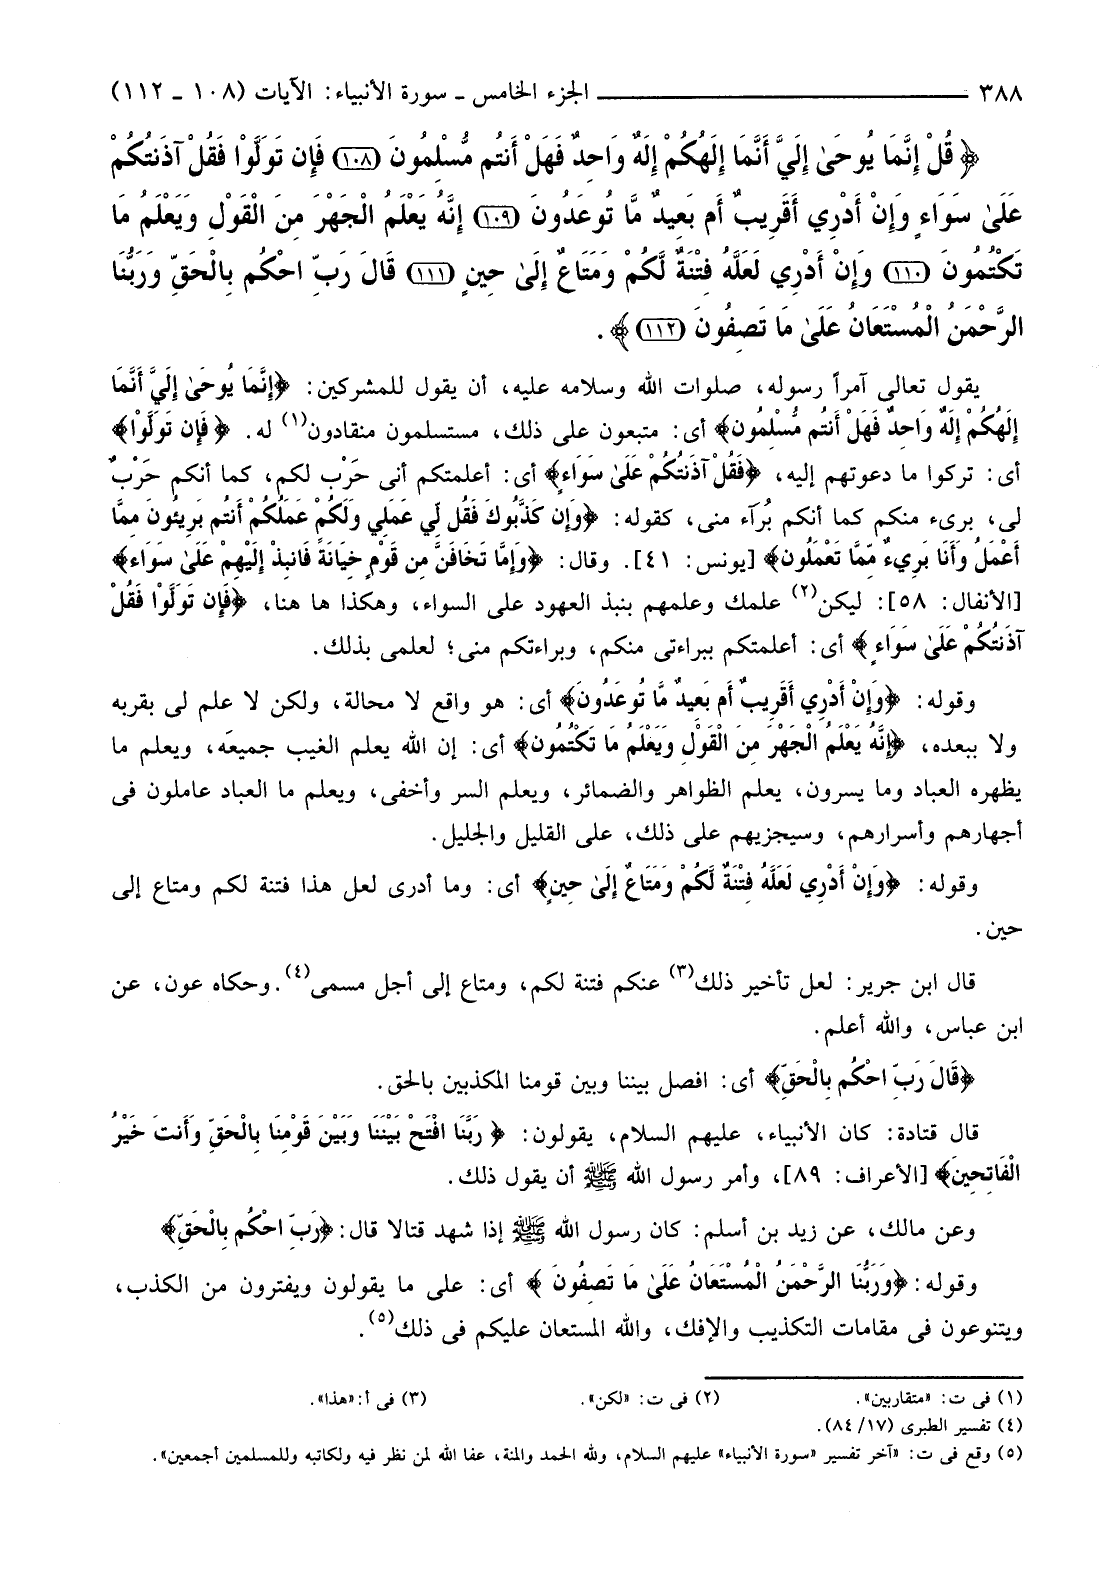 ٣٨٨ ـــــــــــــــــــــــ الجزء الخامس ـ سورة الأنبياء: الآيات (١٠٨ ـ ١١٢)
﴿ قُلْ إِنَّمَا يُوحَىٰ إِلَيَّ أَنَّمَا إِلَهُكُمْ إِلَهٌ وَاحِدٌ فَهَلْ أَنتُم مُّسْلِمُونَ (١٠٨) فَإِن تَوَلَّوْا فَقُلْ آذَنتُكُمْ
عَلَىٰ سَوَاءٍ وَإِنْ أَدْرِي أَقَرِيبٌ أَم بَعِيدٌ مَّا تُوعَدُونَ (١٠٩) إِنَّهُ يَعْلَمُ الْجَهْرَ مِنَ الْقَوْلِ وَيَعْلَمُ مَا
تَكْتُمُونَ (١١٠) وَإِنْ أَدْرِي لَعَلَّهُ فِتْنَةٌ لَّكُمْ وَمَتَاعٌ إِلَىٰ حِينٍ (١١١) قَالَ رَبِّ احْكُم بِالْحَقِّ وَرَبُّنَا
الرَّحْمَنُ الْمُسْتَعَانُ عَلَىٰ مَا تَصِفُونَ (١١٢) ﴾ .
يقول تعالى آمراً رسوله، صلوات الله وسلامه عليه، أن يقول للمشركين: ﴿إِنَّمَا يُوحَىٰ إِلَيَّ أَنَّمَا
إِلَهُكُمْ إِلَهٌ وَاحِدٌ فَهَلْ أَنتُم مُّسْلِمُونَ﴾ أى: متبعون على ذلك، مستسلمون منقادون(١) له. ﴿ فَإِن تَوَلَّوْا﴾
أى: تركوا ما دعوتهم إليه، ﴿فَقُلْ آذَنتُكُمْ عَلَىٰ سَوَاءٍ﴾ أى: أعلمتكم أنى حَرْب لكم، كما أنكم حَرْبٌ
لى، برىء منكم كما أنكم بُرَآء منى، كقوله: ﴿وَإِن كَذَّبُوكَ فَقُل لِّي عَمَلِي وَلَكُمْ عَمَلُكُمْ أَنتُم بَرِيئُونَ مِمَّا
أَعْمَلُ وَأَنَا بَرِيءٌ مِّمَّا تَعْمَلُون﴾ [يونس: ٤١]. وقال: ﴿وَإِمَّا تَخَافَنَّ مِن قَوْمٍ خِيَانَةً فَانبِذْ إِلَيْهِمْ عَلَىٰ سَوَاءٍ﴾
[الأنفال: ٥٨]: ليكن(٢) علمك وعلمهم بنبذ العهود على السواء، وهكذا ها هنا، ﴿فَإِن تَوَلَّوْا فَقُلْ
آذَنتُكُمْ عَلَىٰ سَوَاءٍ ﴾ أى: أعلمتكم ببراءتى منكم، وبراءتكم منى؛ لعلمى بذلك.
وقوله: ﴿وَإِنْ أَدْرِي أَقَرِيبٌ أَم بَعِيدٌ مَّا تُوعَدُونَ﴾ أى: هو واقع لا محالة، ولكن لا علم لى بقربه
ولا ببعده، ﴿إِنَّهُ يَعْلَمُ الْجَهْرَ مِنَ الْقَوْلِ وَيَعْلَمُ مَا تَكْتُمُون﴾ أى: إن الله يعلم الغيب جميعَه، ويعلم ما
يظهره العباد وما يسرون، يعلم الظواهر والضمائر، ويعلم السر وأخفى، ويعلم ما العباد عاملون فى
أجهارهم وأسرارهم، وسيجزيهم على ذلك، على القليل والجليل.
وقوله: ﴿وَإِنْ أَدْرِي لَعَلَّهُ فِتْنَةٌ لَّكُمْ وَمَتَاعٌ إِلَىٰ حِينٍ﴾ أى: وما أدرى لعل هذا فتنة لكم ومتاع إلى
حين.
قال ابن جرير: لعل تأخير ذلك(٣) عنكم فتنة لكم، ومتاع إلى أجل مسمى(٤).وحكاه عون، عن
ابن عباس، والله أعلم.
﴿قَالَ رَبِّ احْكُم بِالْحَقِّ﴾ أى: افصل بيننا وبين قومنا المكذبين بالحق.
قال قتادة: كان الأنبياء، عليهم السلام، يقولون: ﴿ رَبَّنَا افْتَحْ بَيْنَنَا وَبَيْنَ قَوْمِنَا بِالْحَقِّ وَأَنتَ خَيْرُ
الْفَاتِحِينَ﴾ [الأعراف: ٨٩]، وأمر رسول الله ﷺ أن يقول ذلك.
وعن مالك، عن زيد بن أسلم: كان رسول الله ﷺ إذا شهد قتالا قال: ﴿رَبِّ احْكُم بِالْحَقِّ﴾
وقوله: ﴿وَرَبُّنَا الرَّحْمَنُ الْمُسْتَعَانُ عَلَىٰ مَا تَصِفُونَ ﴾ أى: على ما يقولون ويفترون من الكذب،
ويتنوعون فى مقامات التكذيب والإفك، والله المستعان عليكم فى ذلك(٥).
(١) فى ت: «متقاربين». (٢) فى ت: «لكن». (٣) فى أ: «هذا».
(٤) تفسير الطبرى (١٧/ ٨٤).
(٥) وقع فى ت: «آخر تفسير «سورة الأنبياء» عليهم السلام، ولله الحمد والمنة، عفا الله لمن نظر فيه ولكاتبه وللمسلمين أجمعين».